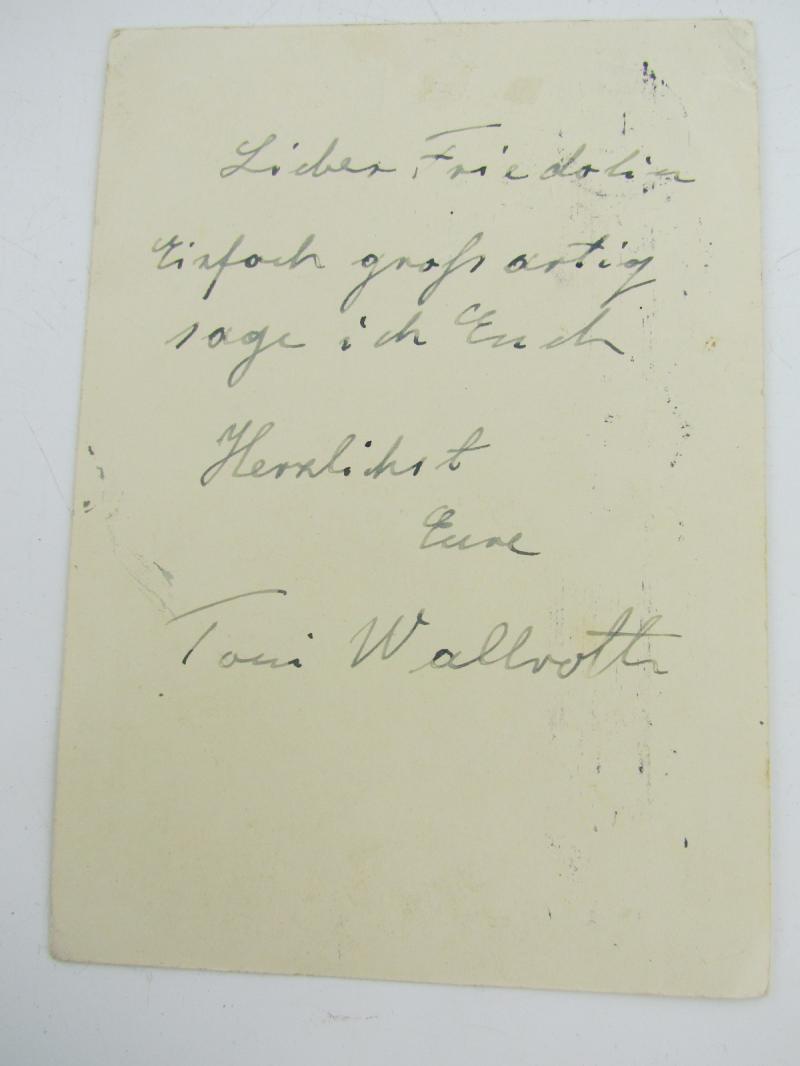 Lieber Friedolin
Einfach großartig
sage ich Euch
Herzlichst
Eure
Toni Wallroth